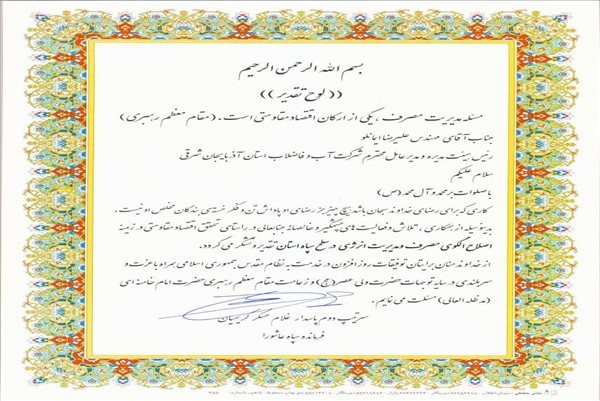 بسم الله الرحمن الرحیم
((لوح تقدیر))
مسئله مدیریت مصرف ، یکی از ارکان اقتصاد مقاومتی است . (مقام معظم رهبری)
جناب آقای مهندس علیرضا ایمانلو
رئیس هیئت مدیره و مدیر عامل محترم شرکت آب و فاضلاب استان آذربایجان شرقی
سلام علیکم
با صلوات بر محمد و آل محمد (ص)
کاری که برای رضای خداوند سبحان باشد هیچ چیز جز رضای او پاداش آن و قطره منتسبی بندگان مخلص اونیست.
بدینوسیله از همکاری ، تلاش و فعالیت های پیگیر و خالصانه جنابعالی در راستای تحقق اقتصاد مقاومتی در زمینه
اصلاح الگوی مصرف و مدیریت انرژی در سطح سپاه استان تقدیر و تشکر می گردد.
از خداوند منان برایتان توفیقات روزافزون در خدمت به نظام مقدس جمهوری اسلامی همراه با عزت و
سربلندی در سایه توجهات حضرت ولی عصر (عج) و زعامت مقام معظم رهبری حضرت امام خامنه ای
(مد ظله العالی) مسئلت می نمایم.
سرتیپ دوم پاسدار غلام عسکر کریمیان
فرمانده سپاه عاشورا